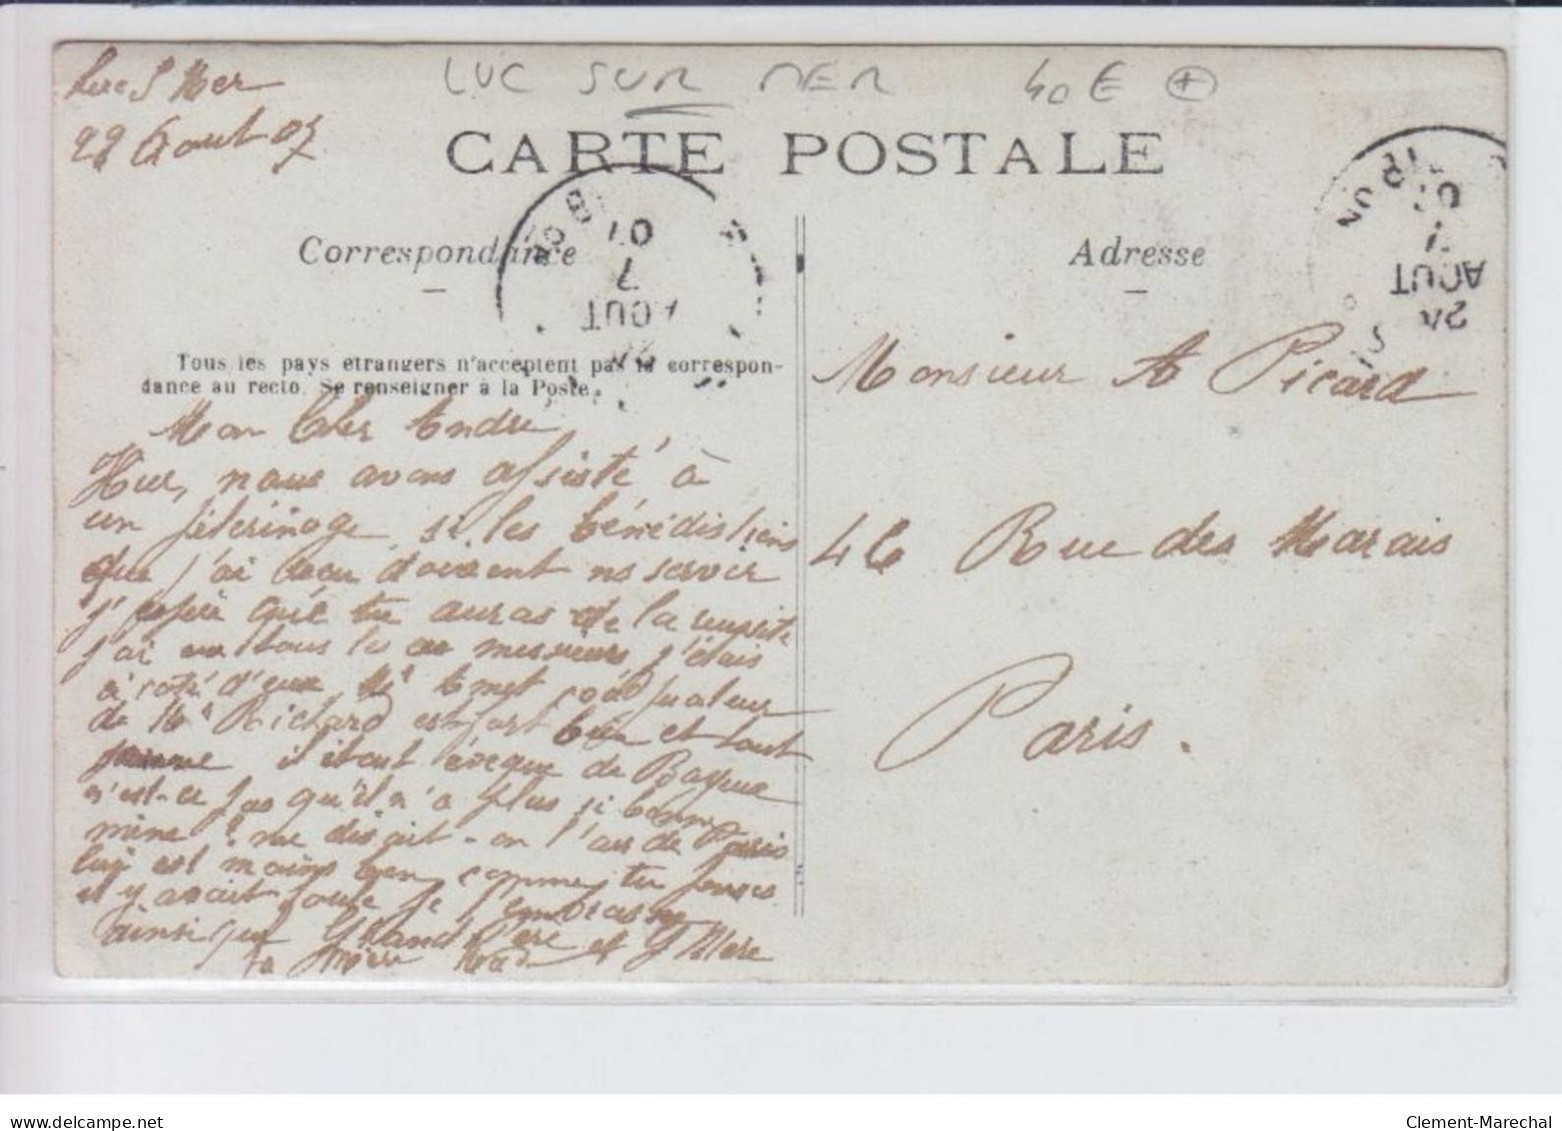 Luc S Mer
LUC SUR MER 40 € +
22 Aout 07
CARTE POSTALE
Correspondance
Adresse
07
7
AOUT
24
AOUT
Tous les pays etrangers n'acceptent pas la correspon-
dance au recto. Se renseigner à la Poste.
Mon Cher Andre
Hier, nous avons assisté à
un pélerinage si les bénédictions
que j'ai reçu doivent no servir
j'espère que tu auras de la reusite
j'ai vu tous les messieurs j'étais
à coté d'eux Mr Amet coadjuteur
de Mr Richard est fort bien et tout
il était évêque de Bayeux
n'est-ce pas qu'il n'a plus si bonne
mine ? me disait-on l'air de Paris
lui est moins bon comme tu penses
il y avait foule je t'embrasse
ainsi que Grand Père et G Mere
Ta
Monsieur A Picard
46 Rue des Marais
Paris.
delcampe.net
Clement-Marechal